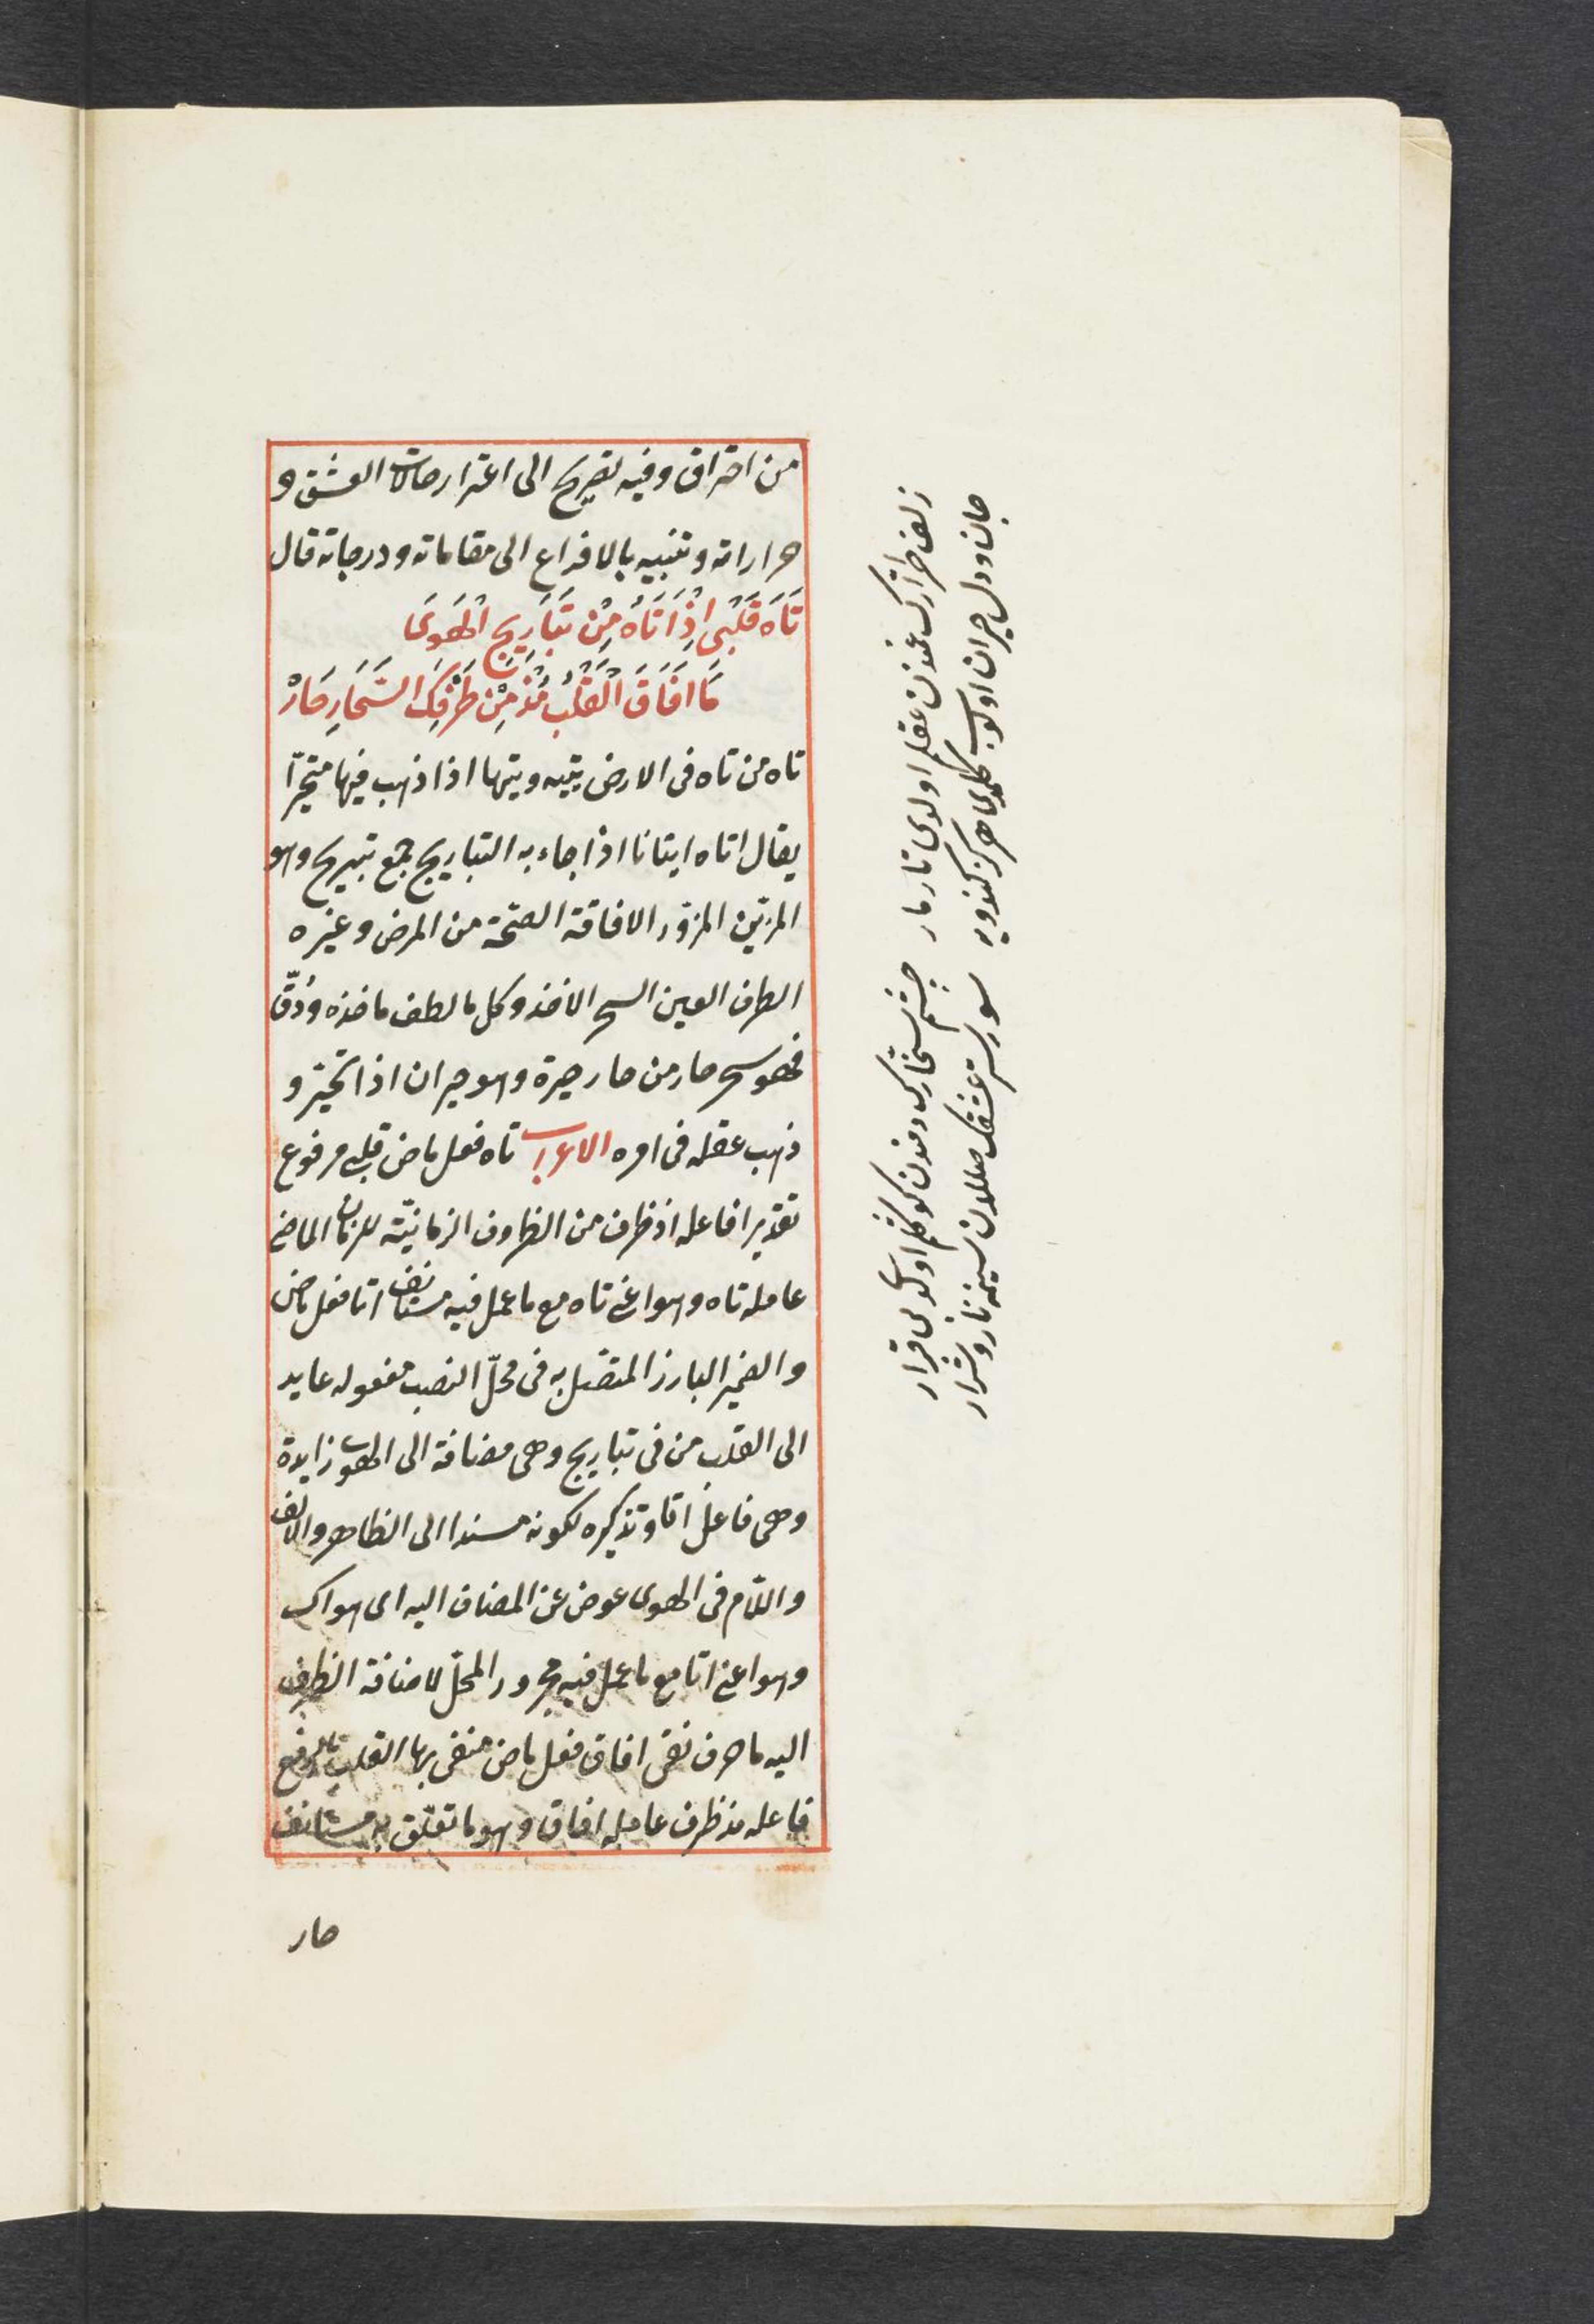 من احتراق وفيه تصريح الى اعترار حالات العشق و
حراراته وتنبيه بالافراع الى مقاماته ودرجاته قال
تَاهَ قَلْبِي اِذْ اَتَاهُ مِنْ تَبَارِيحِ الْهَوَى
مَا اَفَاقَ الْقَلْبُ مُذْ مِنْ طَرْفِكَ السَّحَارِ حَارْ
تاه من تاه فى الارض يتيه ويتيها اذا ذهب فيها متحيّرا
يقال اتاه ايتانا اذا جاء به التباريح جمع تبريح وهو
المزيّن المزوّر الافاقة الصحّة من المرض وغيره
الطرف العين السحر الاخذ وكل ما لطف ماخذه ودَقّ
فهو سحر حار من حار حيرة وهو حيران اذا تحيّر و
ذهب عقله فى امره الاعراب تاه فعل ماض قلبى مرفوع
تقديرا فاعله اذ ظرف من الظروف الزمانيّة للزمان الماضى
عامله تاه وهو اعنى تاه مع ما عمل فيه مستأنف اتا فعل ماض
والضمير البارز المتصل به فى محلّ النصب مفعوله عايد
الى القلب من فى تباريح وهى مضافة الى الهوى زايدة
وهى فاعل اتا وتذكيره لكونه مسندا الى الظاهر والالف
واللام فى الهوى عوض عن المضاف اليه اى هواك
وهو اعنى اتا مع ما عمل فيه مجرور المحلّ لاضافة الظرف
اليه ما حرف نفى افاق فعل ماض منفى بها القلب بالرفع
فاعله مذ ظرف عامله افاق وهو ما تعلّق به مستأنف
حار
زلف طرارك غمندن عقلم اولدى تار مار
چشم سحّارك دمندن كوكلم اولدى بى قرار
جان ودل حيران اولوب كلمدى هركز كندويه
سورش عشقك صالدن سينمه نار وشرار